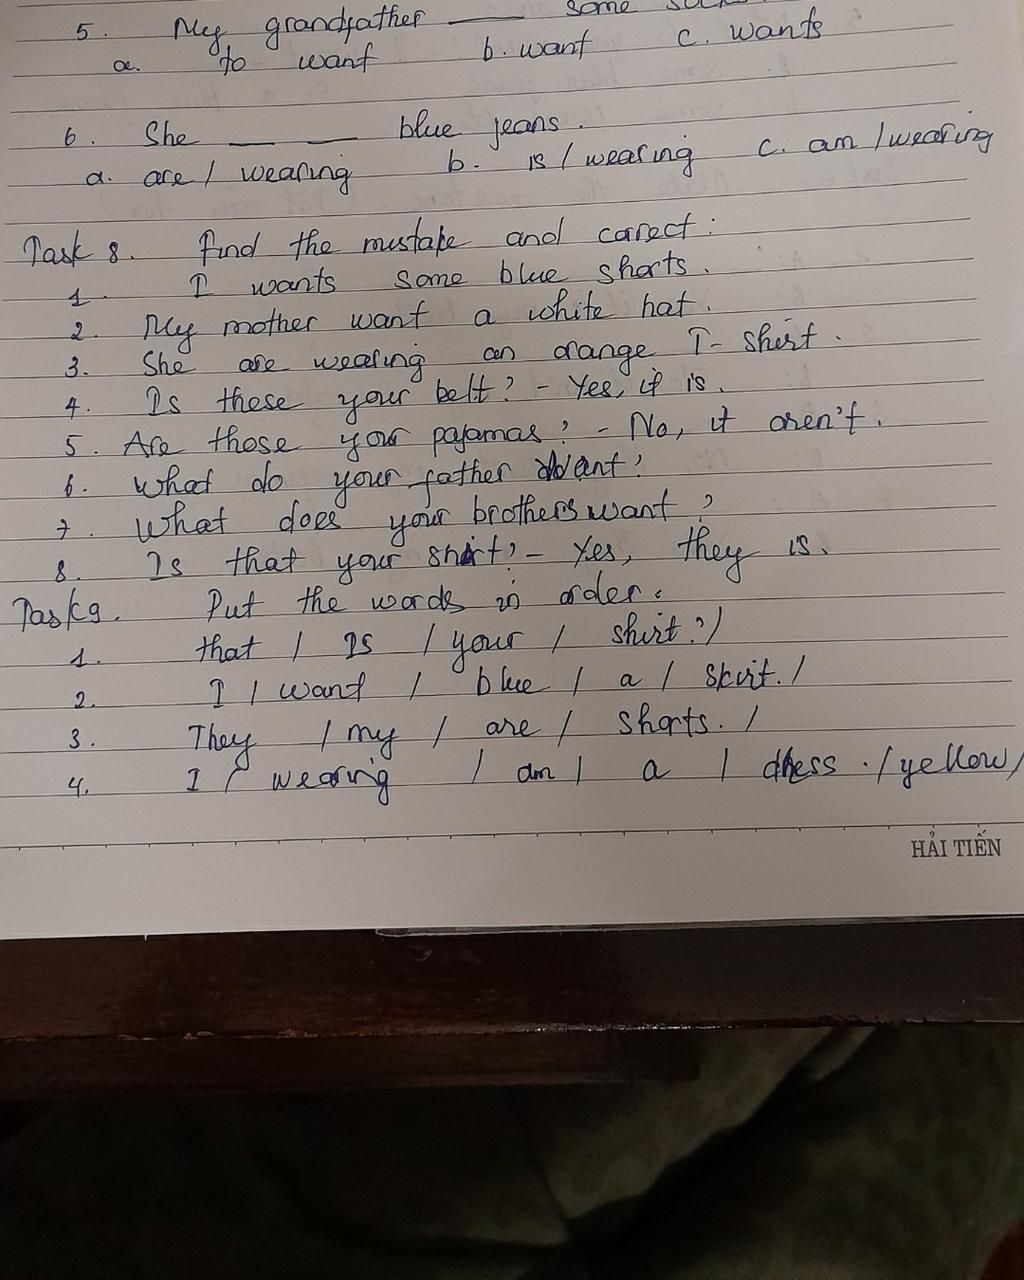 5. My grandfather ___ some
a. to want b. want c. wants
6. She __ __ blue jeans.
a. are / wearing b. is / wearing c. am / wearing
Task 8. Find the mistake and carect:
1. I wants some blue shorts.
2. My mother want a white hat.
3. She are wearing an orange T-shirt.
4. Is these your belt? - Yes, it is.
5. Are those your pajamas? - No, it aren't.
6. What do your father want?
7. What does your brothers want?
8. Is that your shirt? - Yes, they is.
Task 9. Put the words in order:
1. that / Is / your / shirt? /
2. I / want / blue / a / skirt. /
3. They / my / are / shorts. /
4. I / wearing / am / a / dress. / yellow /
HẢI TIẾN